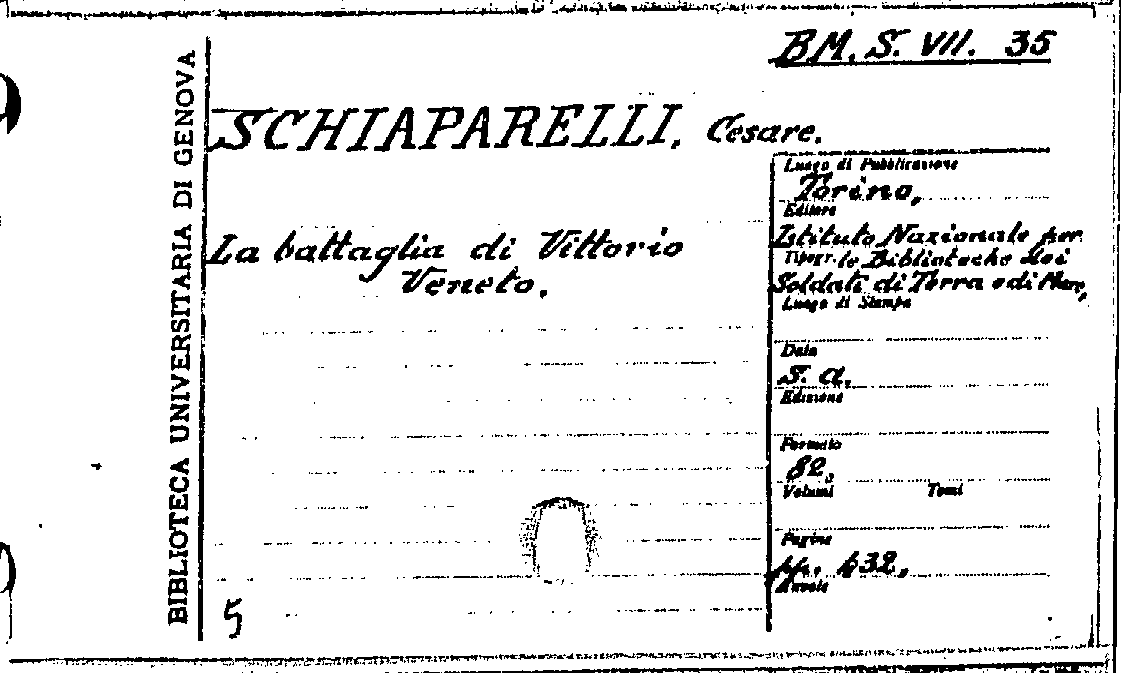 BM. S. VII. 35
BIBLIOTECA UNIVERSITARIA DI GENOVA
SCHIAPARELLI, Cesare.
La battaglia di Vittorio
Veneto.
Luogo di Pubblicazione
Torino,
Editore
Istituto Nazionale per
Tipogr. le Biblioteche dei
Soldati di Terra e di Mare,
Luogo di Stampa
Data
S. a.
Edizione
Formato
Volumi Tomi
Pagine
pp. 32,
Tavole
5